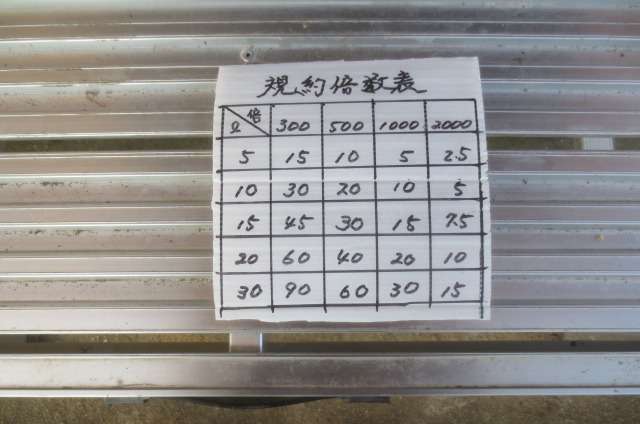 規約倍数表
ℓ 倍 300 500 1000 2000
5 15 10 5 2.5
10 30 20 10 5
15 45 30 15 7.5
20 60 40 20 10
30 90 60 30 15